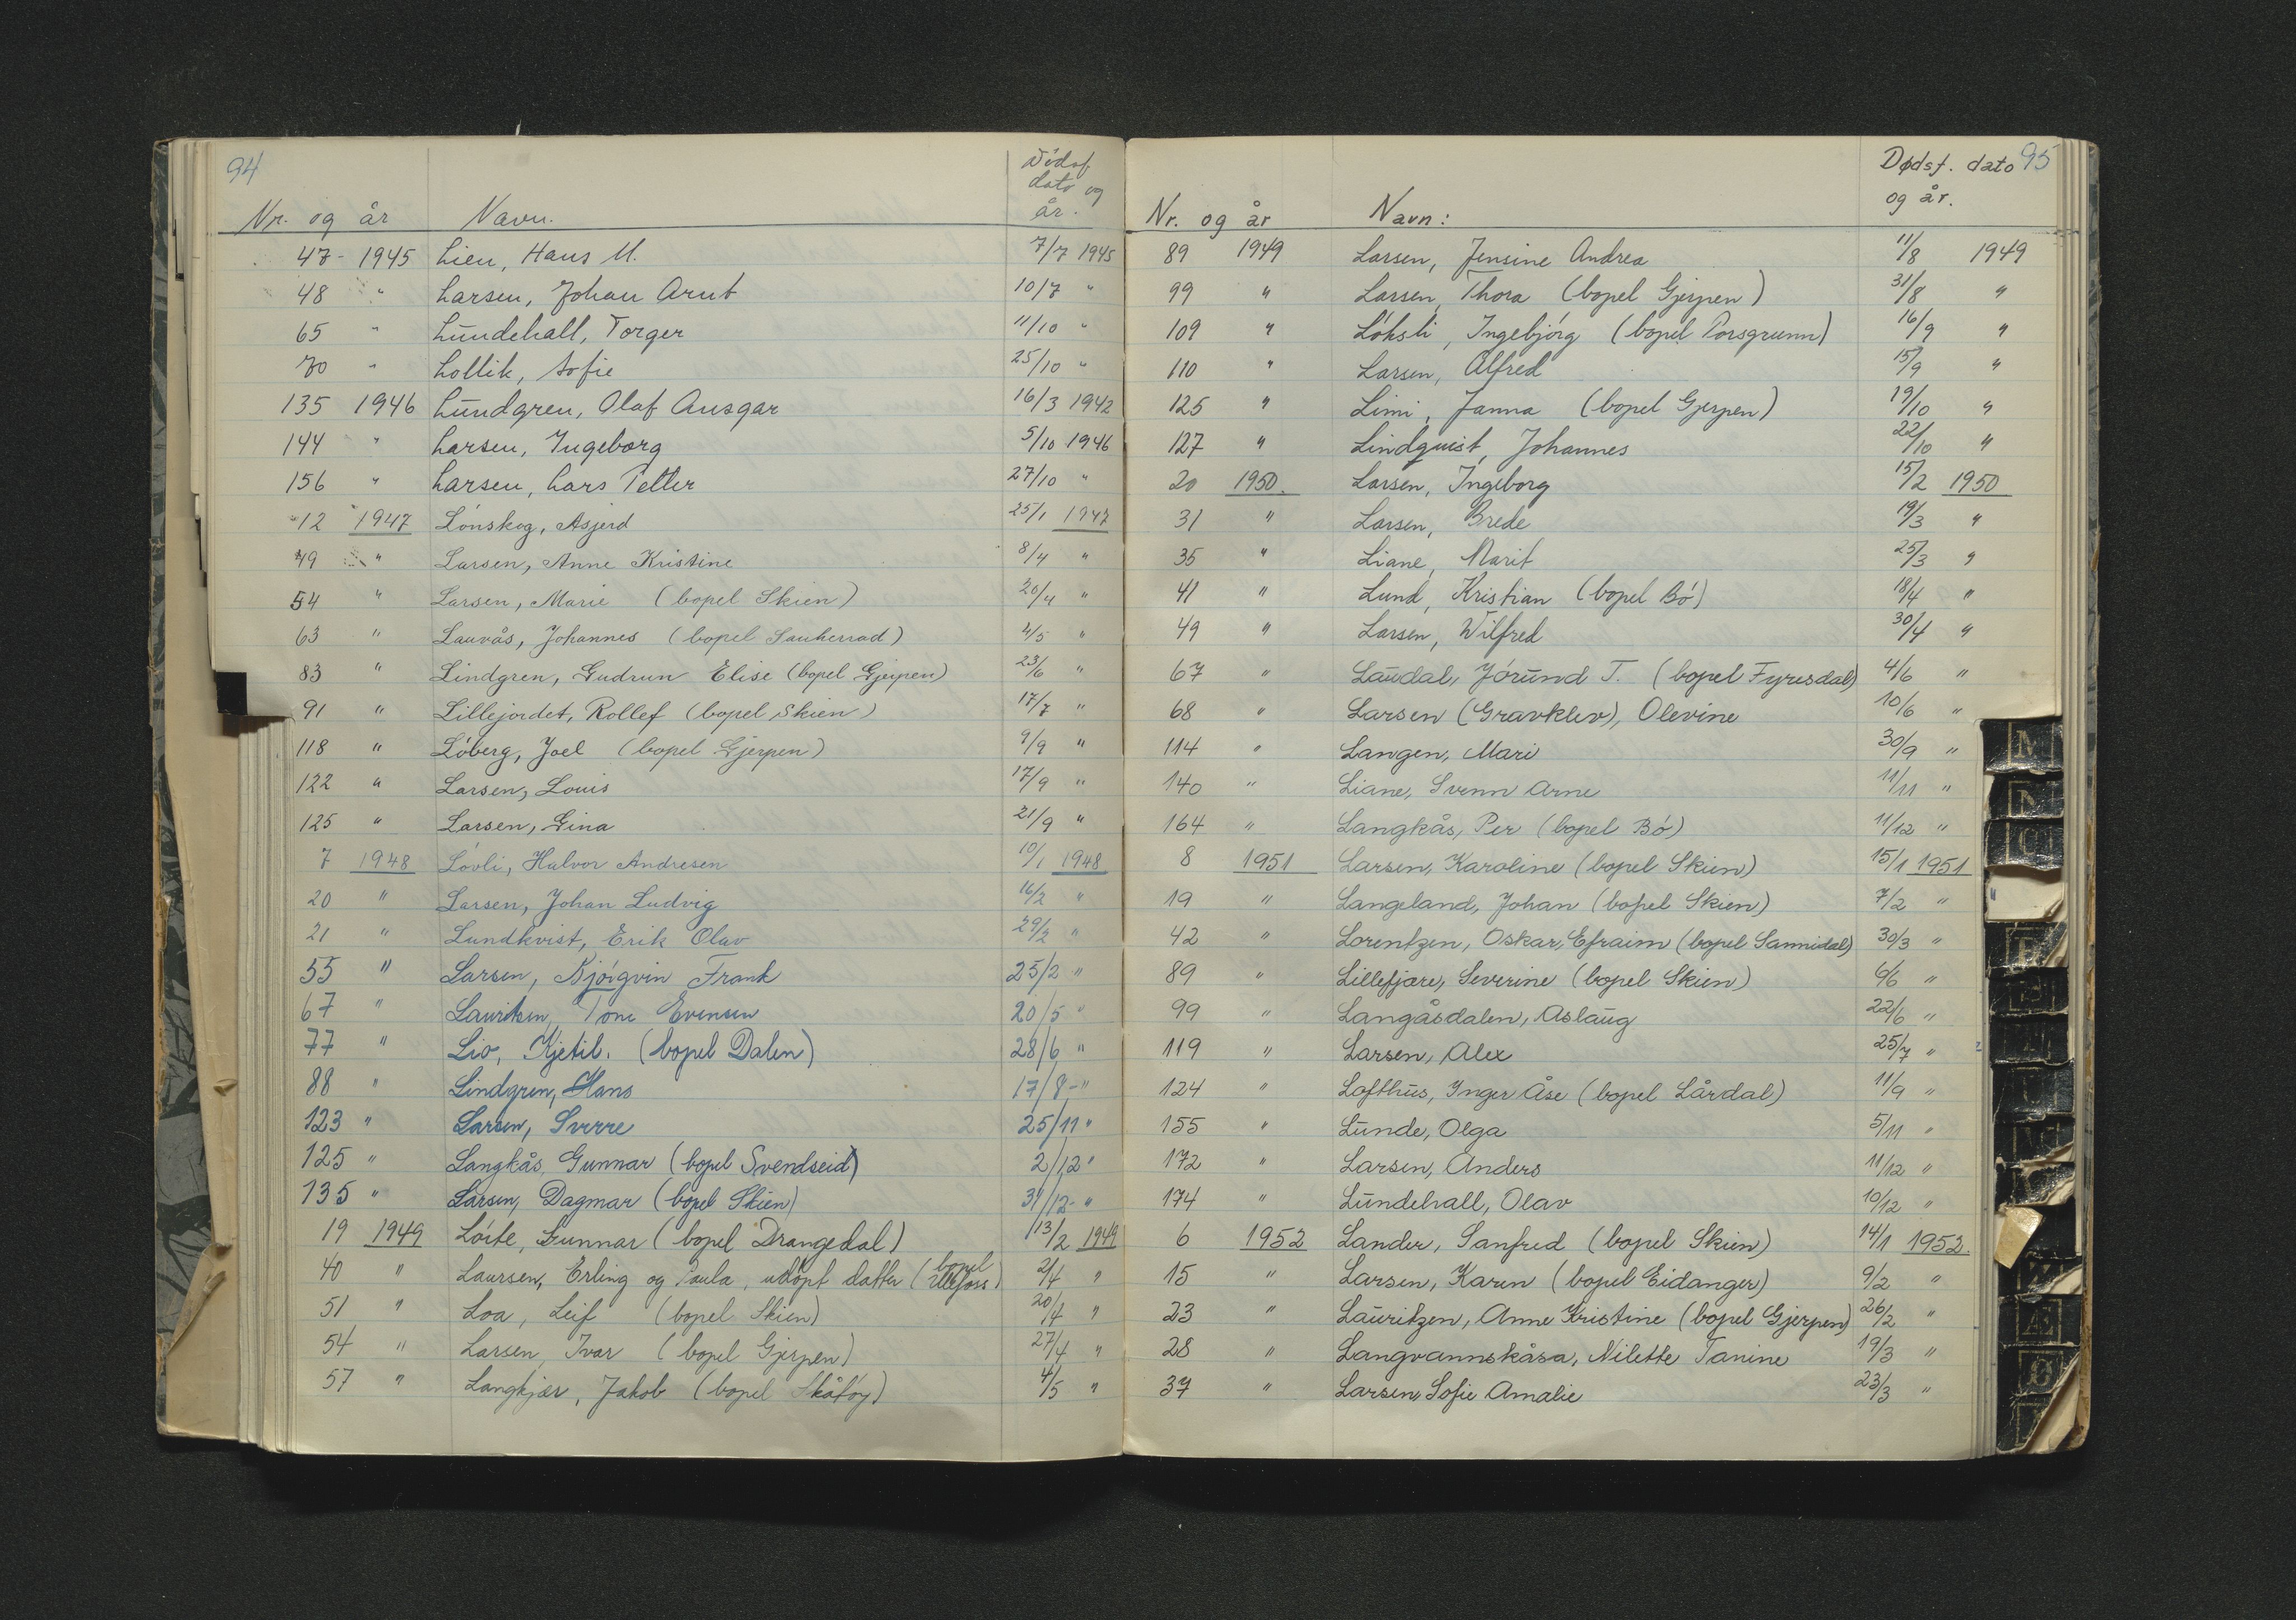 94
Nr. og år Navn. Dødsf. dato og år.
47 - 1945 Lien, Hans M. 7/7 1945
48 " Larsen, Johan Arnt 10/7 "
65 " Lundehall, Torger 11/10 "
70 " Lollik, Sofie 25/10 "
135 1946 Lundgren, Olaf Ansgar 16/3 1942
144 " Larsen, Ingeborg 5/10 1946
156 " Larsen, Lars Petter 27/10 "
12 1947 Lønskog, Asjerd 25/1 1947
49 " Larsen, Anne Kristine 8/4 "
54 " Larsen, Marie (bopel Skien) 20/4 "
63 " Lauvås, Johannes (bopel Sauherrad) 4/5 "
83 " Lindgren, Gudrun Elise (bopel Gjerpen) 23/6 "
91 " Lillejordet, Rollef (bopel Skien) 17/7 "
118 " Löberg, Joel (bopel Gjerpen) 9/9 "
122 " Larsen, Louis 17/9 "
125 " Larsen, Gina 21/9 "
7 1948 Lövli, Halvor Andresen 10/1 1948
20 " Larsen, Johan Ludvig 16/2 "
21 " Lundkvist, Erik Olav 29/2 "
55 " Larsen, Bjørgvin Frank 25/2 "
67 " Lauritsen, Tone Evensen 20/5 "
77 " Lio, Kjetil. (bopel Dalen) 28/6 "
88 " Lindgren, Hans 17/8 - "
123 " Larsen, Sverre 25/11 "
125 " Langkås, Gunnar (bopel Svendseid) 2/12 "
135 " Larsen, Dagmar (bopel Skien) 31/12 - "
19 1949 Löite, Gunnar (bopel Drangedal) 13/2 1949
40 " Laursen, Erling og Paula, udöpt datter (bopel Ulefoss) 2/4 "
51 " Loa, Leif (bopel Skien) 20/4 "
54 " Larsen, Ivar (bopel Gjerpen) 27/4 "
57 " Langkjær, Jakob (bopel Skåtøy) 4/5 "
95
Nr. og år Navn: Dødsf. dato og år.
89 1949 Larsen, Jensine Andrea 11/8 1949
99 " Larsen, Thora (bopel Gjerpen) 31/8 "
109 " Löksli, Ingebjörg (bopel Porsgrunn) 16/9 "
110 " Larsen, Alfred 15/9 "
125 " Limi, Janna (bopel Gjerpen) 19/10 "
127 " Lindquist, Johannes 22/10 "
20 1950. Larsen, Ingeborg 15/2 1950
31 " Larsen, Brede 19/3 "
35 " Liane, Marit 25/3 "
41 " Lund, Kristian (bopel Bö) 18/4 "
49 " Larsen, Wilfred 30/4 "
67 " Laudal, Jörund T. (bopel Fyresdal) 4/6 "
68 " Larsen (Gravklev), Olevine 10/6 "
114 " Langen, Mari 30/9 "
140 " Liane, Svenn Arne 11/11 "
164 " Langkås, Per (bopel Bö) 11/12 "
8 1951 Larsen, Karoline (bopel Skien) 15/1 1951
19 " Langeland, Johan (bopel Skien) 7/2 "
42 " Lorentzen, Oskar, Efraim (bopel Sannidal) 30/3 "
89 " Lillefjære, Severine (bopel Skien) 6/6 "
99 " Langåsdalen, Aslaug 22/6 "
119 " Larsen, Alex 25/7 "
124 " Lofthus, Inger Åse (bopel Lårdal) 11/9 "
155 " Lunde, Olga 5/11 "
172 " Larsen, Anders 11/12 "
174 " Lundehall, Olav 10/12 "
6 1952 Lander, Sanfred (bopel Skien) 14/1 1952.
15 " Larsen, Karen (bopel Eidanger) 9/2 "
23 " Lauritzen, Anne Kristine (bopel Gjerpen) 26/2 "
28 " Langvannskåsa, Nilette Tanine 19/3 "
37 " Larsen, Sofie Amalie 23/3 "
M
N
O
P
Æ
Ø